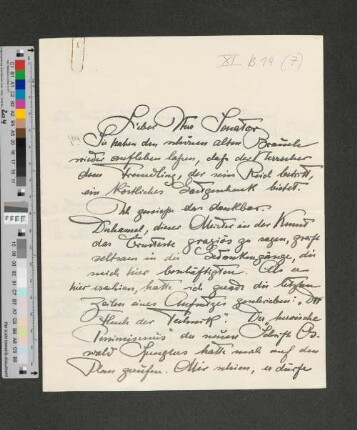 XI B 14 (7)
Lieber Herr Senator
Sie haben den schönen alten Brauch
wieder aufleben lassen, daß der Herrscher
dem Fremdling, der sein Reich betritt,
ein köstliches Gastgeschenk bietet.
Ich genieße das dankbar.
Duhamel, dieser Meister in der Kunst
das Ernsteste graziös zu sagen, greift
seltsam in die Gedankengänge, die
mich hier beschäftigten. Als er
hier erschien, hatte ich grade die letzten
Zeilen eines Aufsatzes geschrieben: "Der
"Fluch der Technik". Der heroische
Pessimismus der neuen Schrift Os-
wald Spenglers hatte mich auf den
Plan gerufen. Mir schien, es dürfe